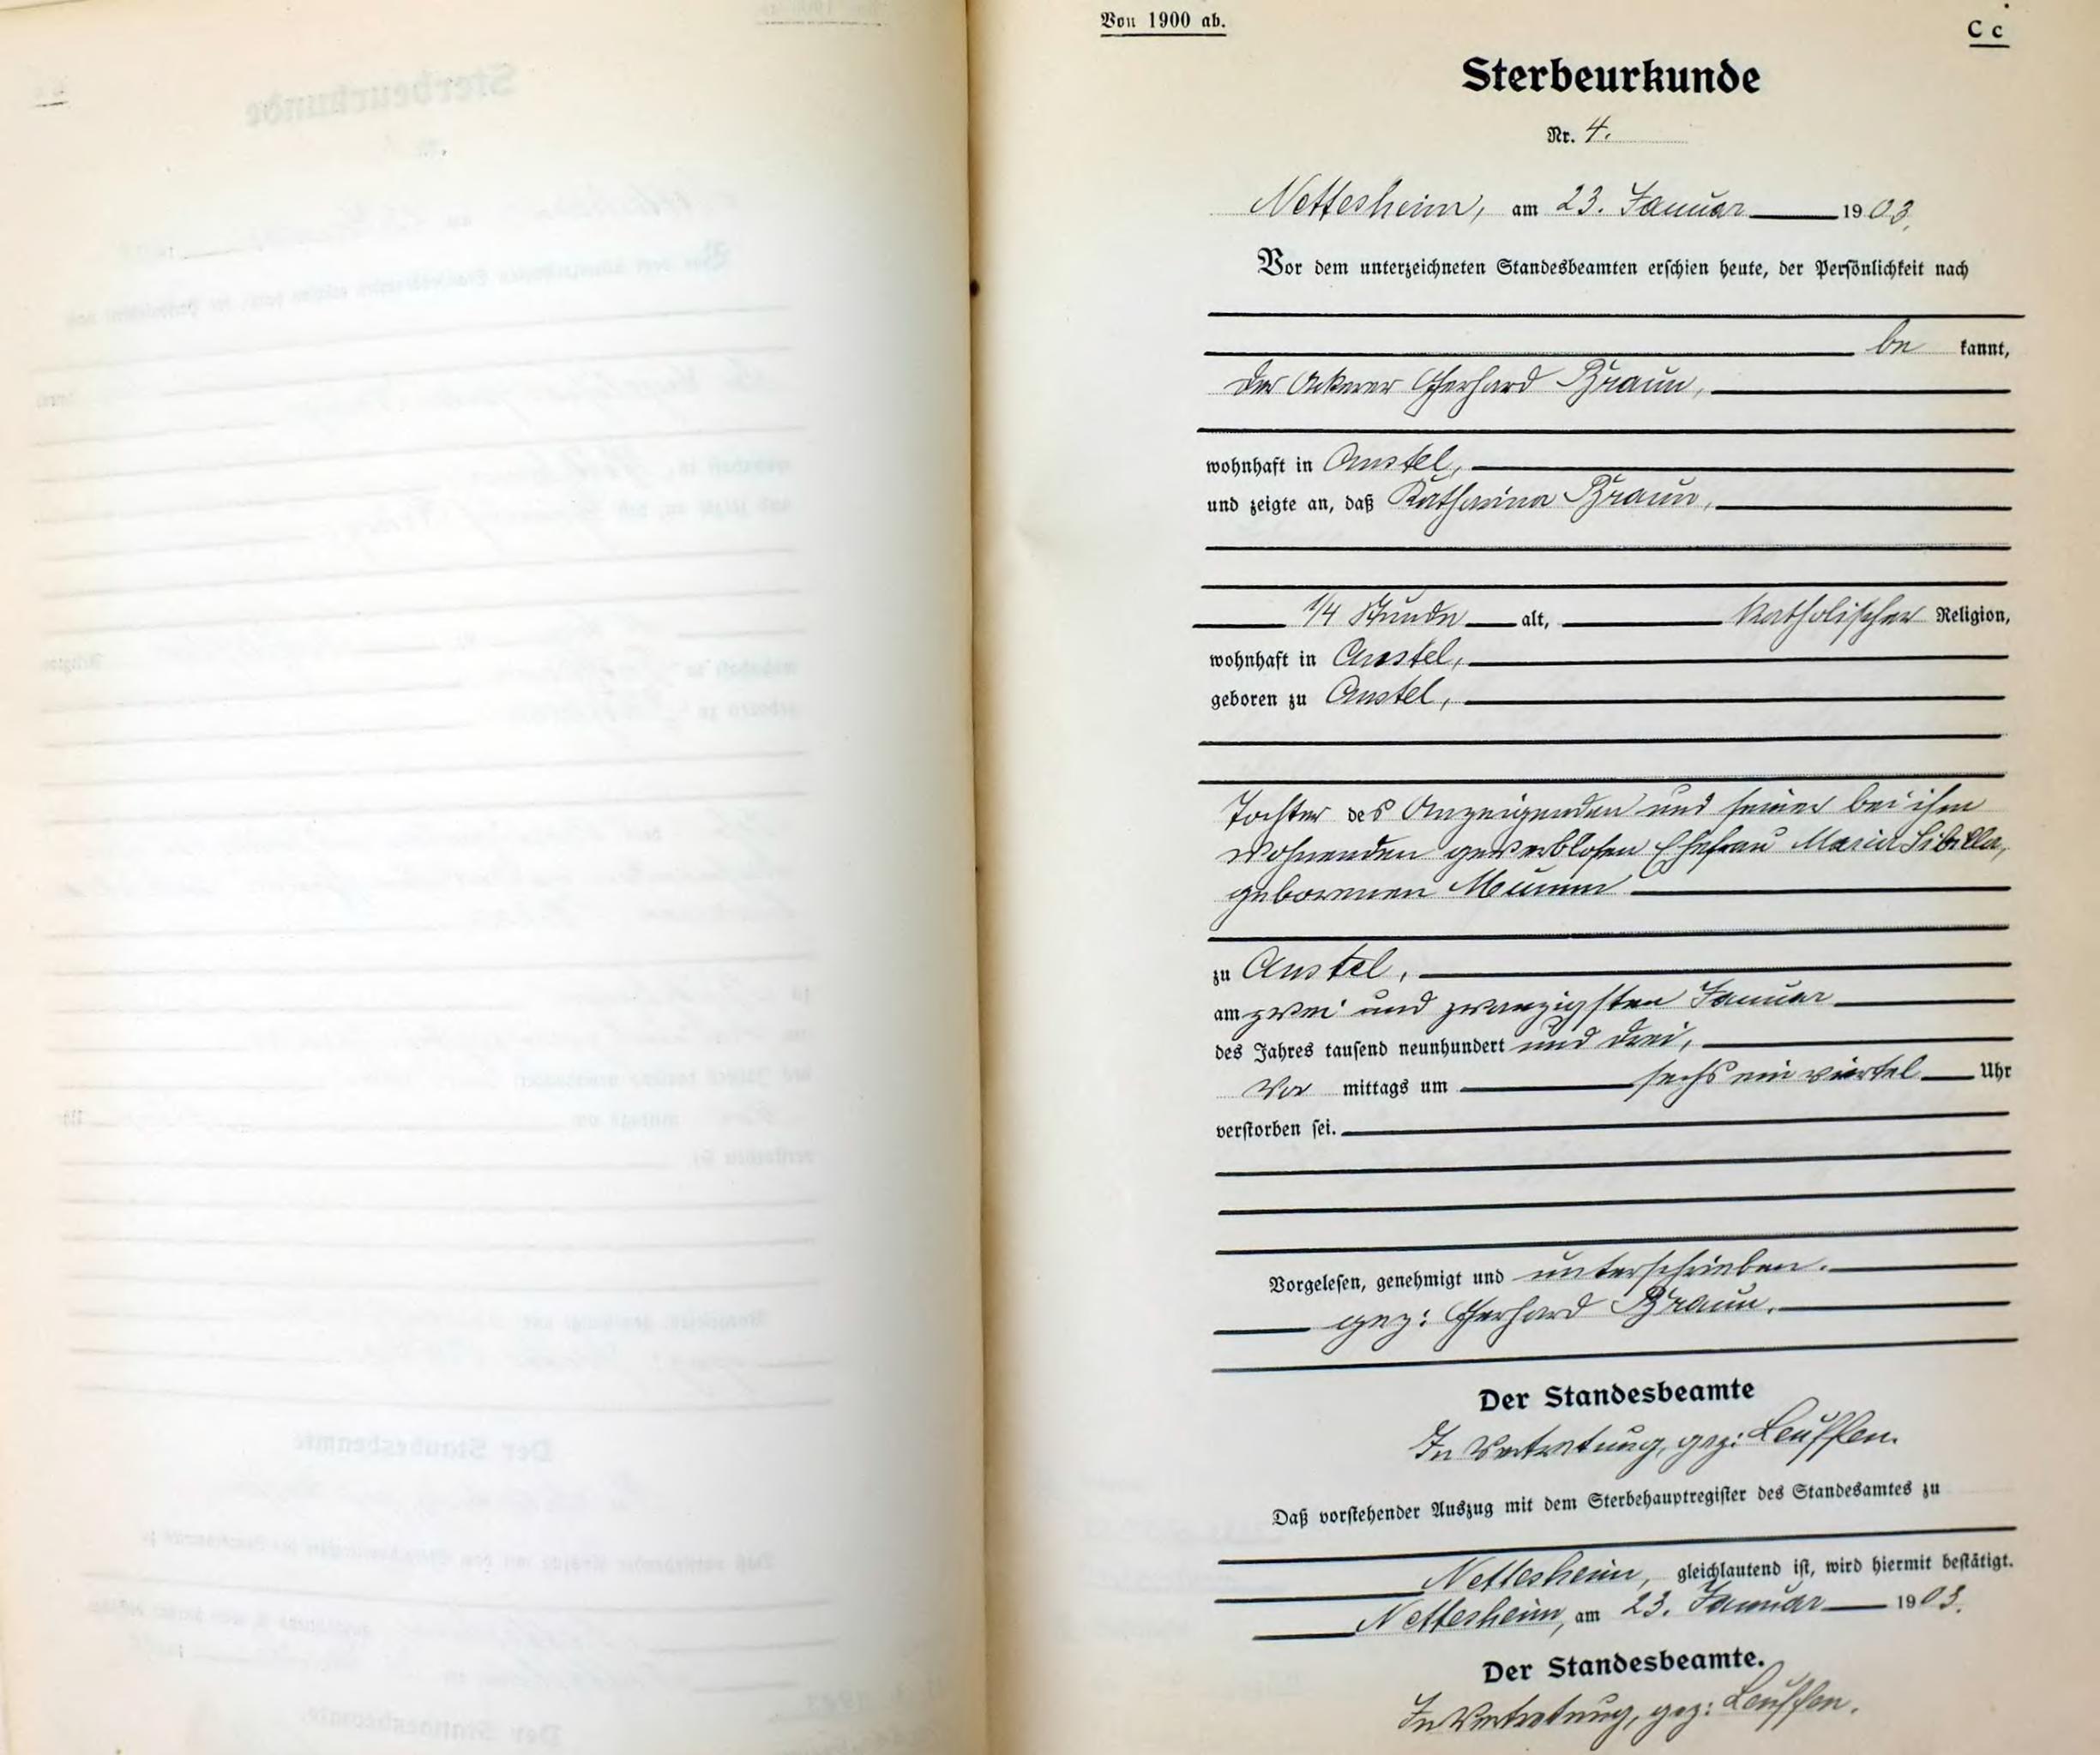 Von 1900 ab.
C c
Sterbeurkunde
Nr. 4.
Nettesheim, am 23. Januar 1903.
Vor dem unterzeichneten Standesbeamten erschien heute, der Persönlichkeit nach
be kannt,
der Ackerer Gerhard Braun,
wohnhaft in Anstel,
und zeigte an, daß Katharina Braun,
1/4 Stunde alt, katholischer Religion,
wohnhaft in Anstel,
geboren zu Anstel,
Tochter des Anzeigenden und seiner bei ihm
wohnenden gewerblosen Ehefrau Maria Sibilla,
geborenen Mumm
zu Anstel,
am zwei und zwanzigsten Januar
des Jahres tausend neunhundert und drei,
Vor mittags um sechs ein viertel Uhr
verstorben sei.
Vorgelesen, genehmigt und unterschrieben.
gez: Gerhard Braun.
Der Standesbeamte
In Vertretung, gez:
Daß vorstehender Auszug mit dem Sterbehauptregister des Standesamtes zu
Nettesheim, gleichlautend ist, wird hiermit bestätigt.
Nettesheim, am 23. Januar 1903.
Der Standesbeamte.
In Vertretung, gez: